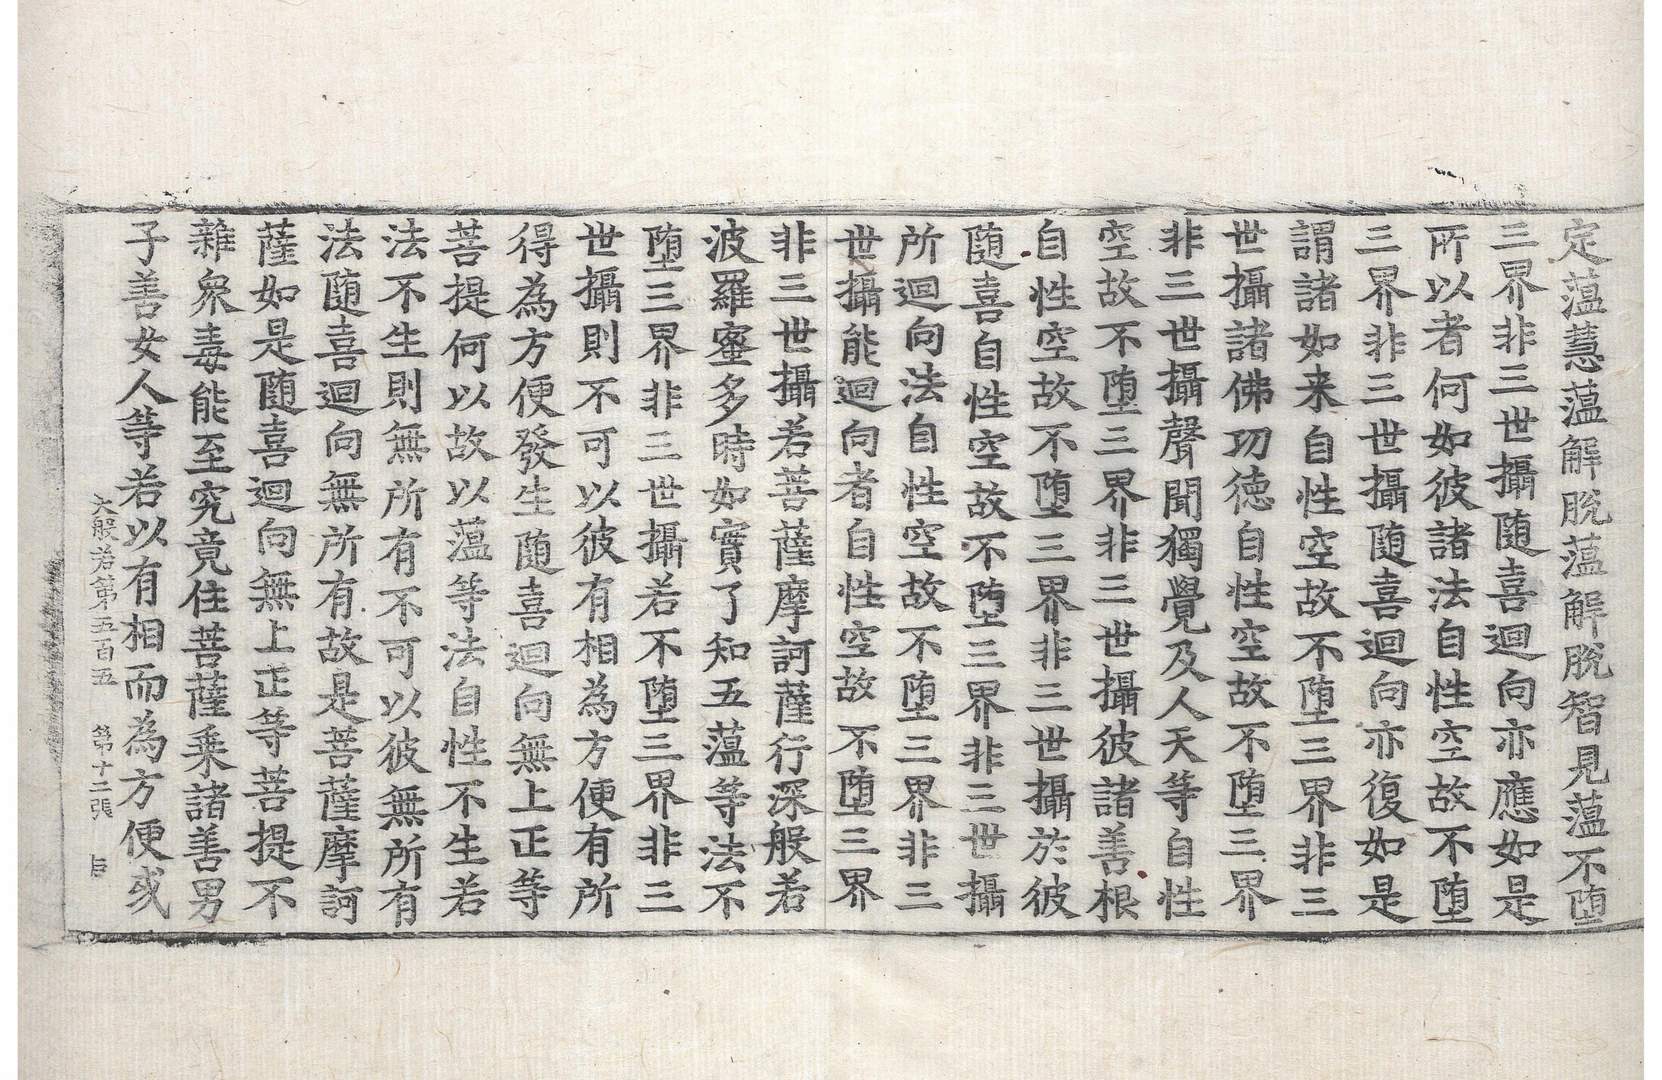 定蕰慧蕰解脫蕰解脫智見蕰不墮
三界非三世攝隨喜迴向亦應如是
所以者何如彼諸法自性空故不墮
三界非三世攝隨喜迴向亦復如是
謂諸如来自性空故不墮三界非三
世攝諸佛功徳自性空故不墮三界
非三世攝聲聞獨覺及人天等自性
空故不墮三界非三世攝彼諸善根
自性空故不墮三界非三世攝於彼
隨喜自性空故不墮三界非三世攝
所迴向法自性空故不墮三界非三
世攝能迴向者自性空故不墮三界
非三世攝若菩薩摩訶薩行深般若
波羅蜜多時如實了知五蕰等法不
墮三界非三世攝若不墮三界非三
世攝則不可以彼有相為方便有所
得為方便發生隨喜迴向無上正等
菩提何以故以蕰等法自性不生若
法不生則無所有不可以彼無所有
法隨喜迴向無所有故是菩薩摩訶
薩如是隨喜迴向無上正等菩提不
雜衆毒能至究竟住菩薩乘諸善男
子善女人等若以有相而為方便或
大般若第五百五 第十二張